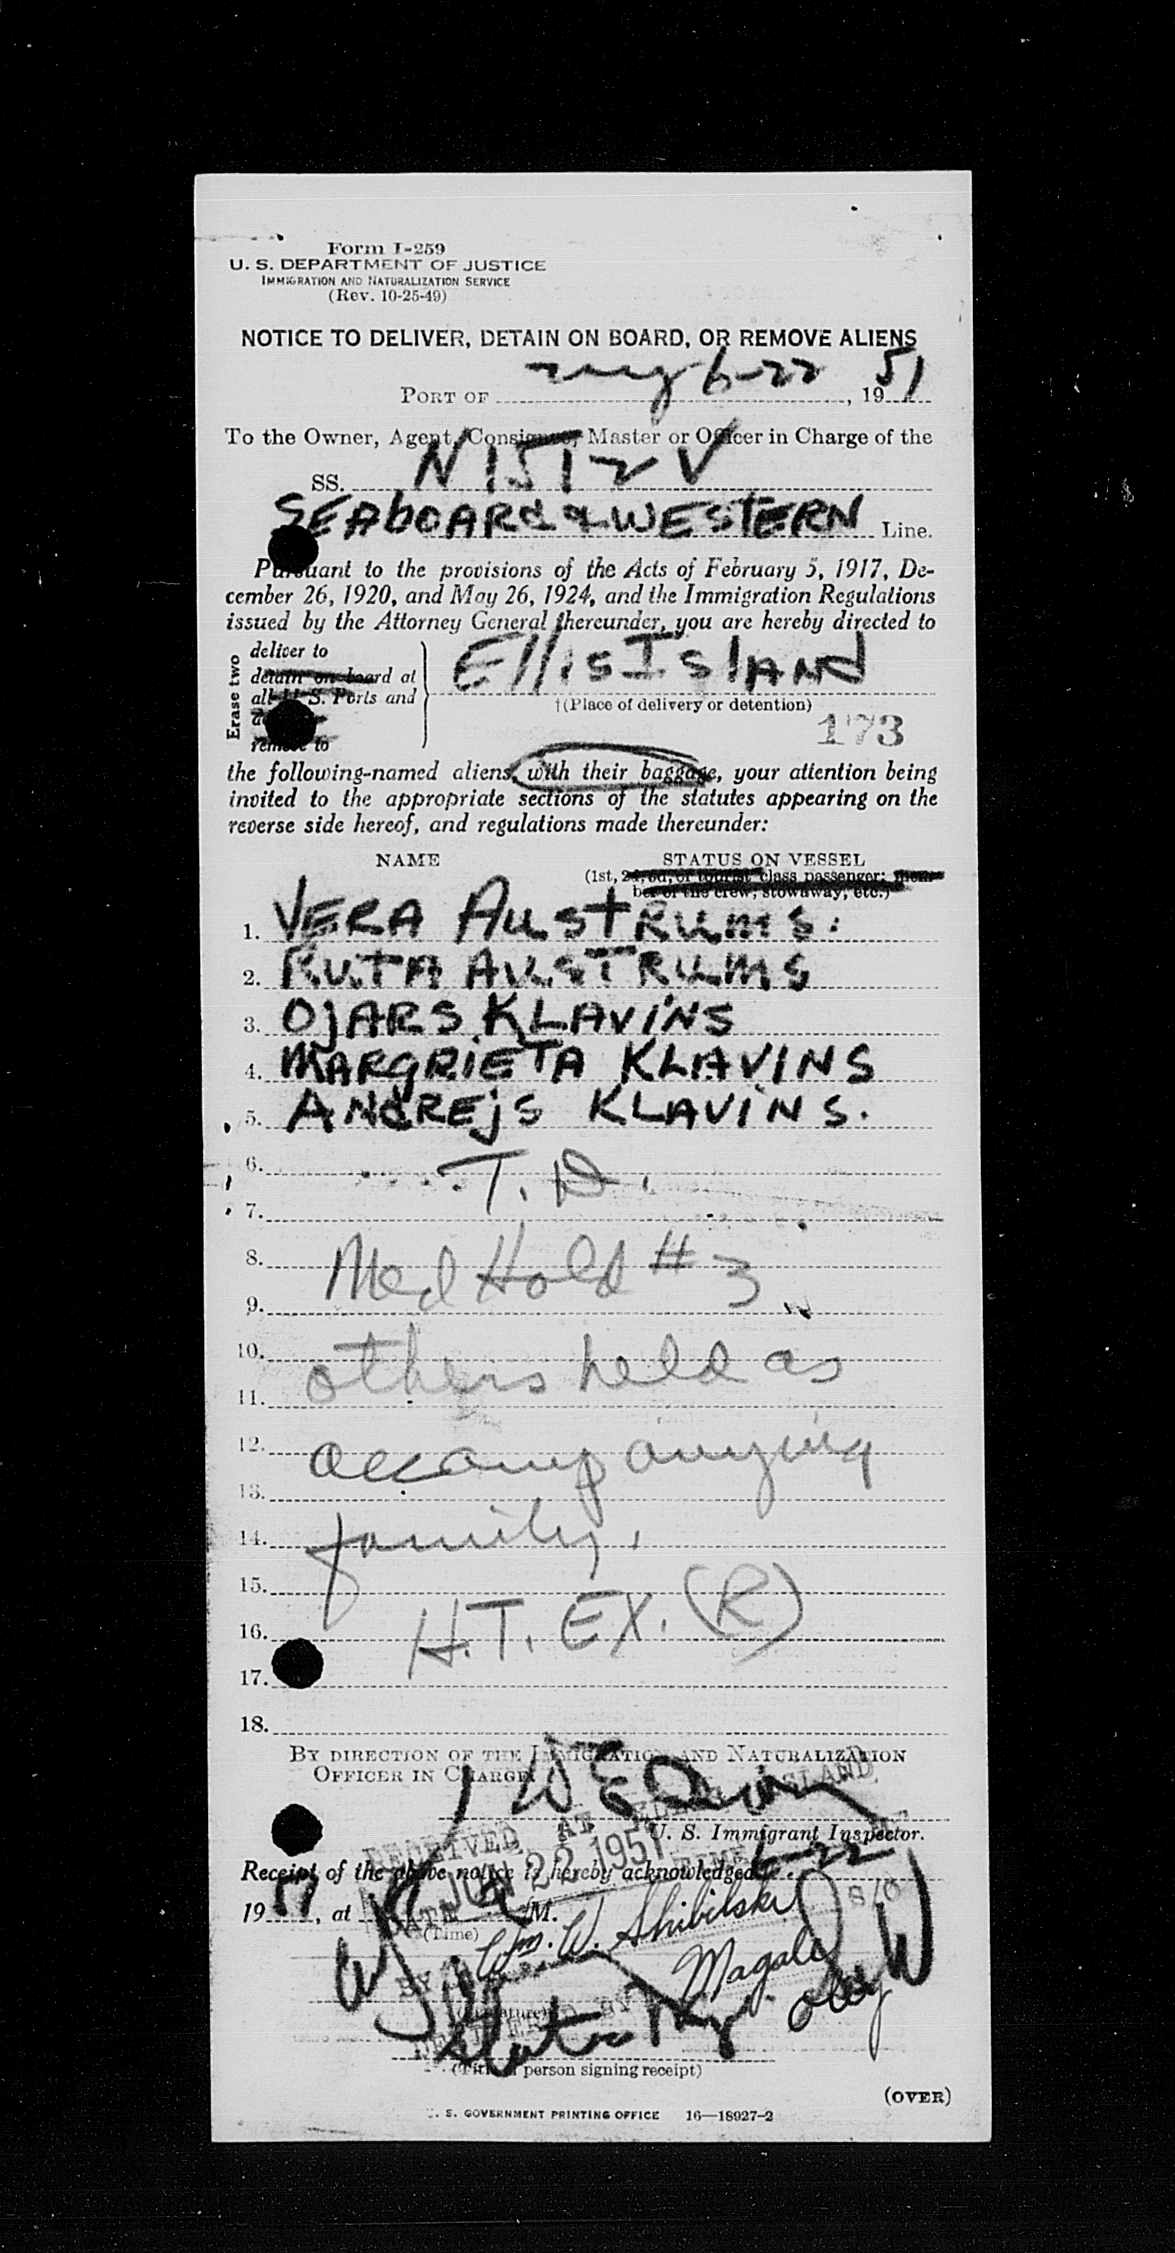 Form I-259
U. S. DEPARTMENT OF JUSTICE
IMMIGRATION AND NATURALIZATION SERVICE
(Rev. 10-25-49)
NOTICE TO DELIVER, DETAIN ON BOARD, OR REMOVE ALIENS
PORT OF 6-22, 1951
To the Owner, Agent, Consignee, Master or Officer in Charge of the
SS. N1512V
SEABOARD & WESTERN Line.
Pursuant to the provisions of the Acts of February 5, 1917, De-
cember 26, 1920, and May 26, 1924, and the Immigration Regulations
issued by the Attorney General thereunder, you are hereby directed to
Erase two
deliver to
detain on board at
all U. S. Ports and
remove to
Ellis ISLAND
†(Place of delivery or detention)
173
the following-named aliens, with their baggage, your attention being
invited to the appropriate sections of the statutes appearing on the
reverse side hereof, and regulations made thereunder:
NAME STATUS ON VESSEL
(1st, 2d, 3d, or tourist class passenger; mem-
ber of the crew, stowaway, etc.)
1. VERA AUSTRUMS.
2. RUTA AUSTRUMS
3. OJARS KLAVINS
4. MARGRIETA KLAVINS
5. ANDREJS KLAVINS.
6. T. D.
7.
8. Med Hold # 3
9.
10. others held as
11.
12. accompanying
13.
14. family.
15.
16. H.T. EX. (R)
17.
18.
BY DIRECTION OF THE IMMIGRATION AND NATURALIZATION
OFFICER IN CHARGE
U. S. Immigrant Inspector.
RECEIVED AT ELLIS ISLAND
JUN 22 1951
Receipt of the above notice is hereby acknowledged 6-22
1951, at M.
(Time)
Wm. W. Shibilski
Magale
(Signature)
(Title of person signing receipt)
(OVER)
U. S. GOVERNMENT PRINTING OFFICE 16—18927-2